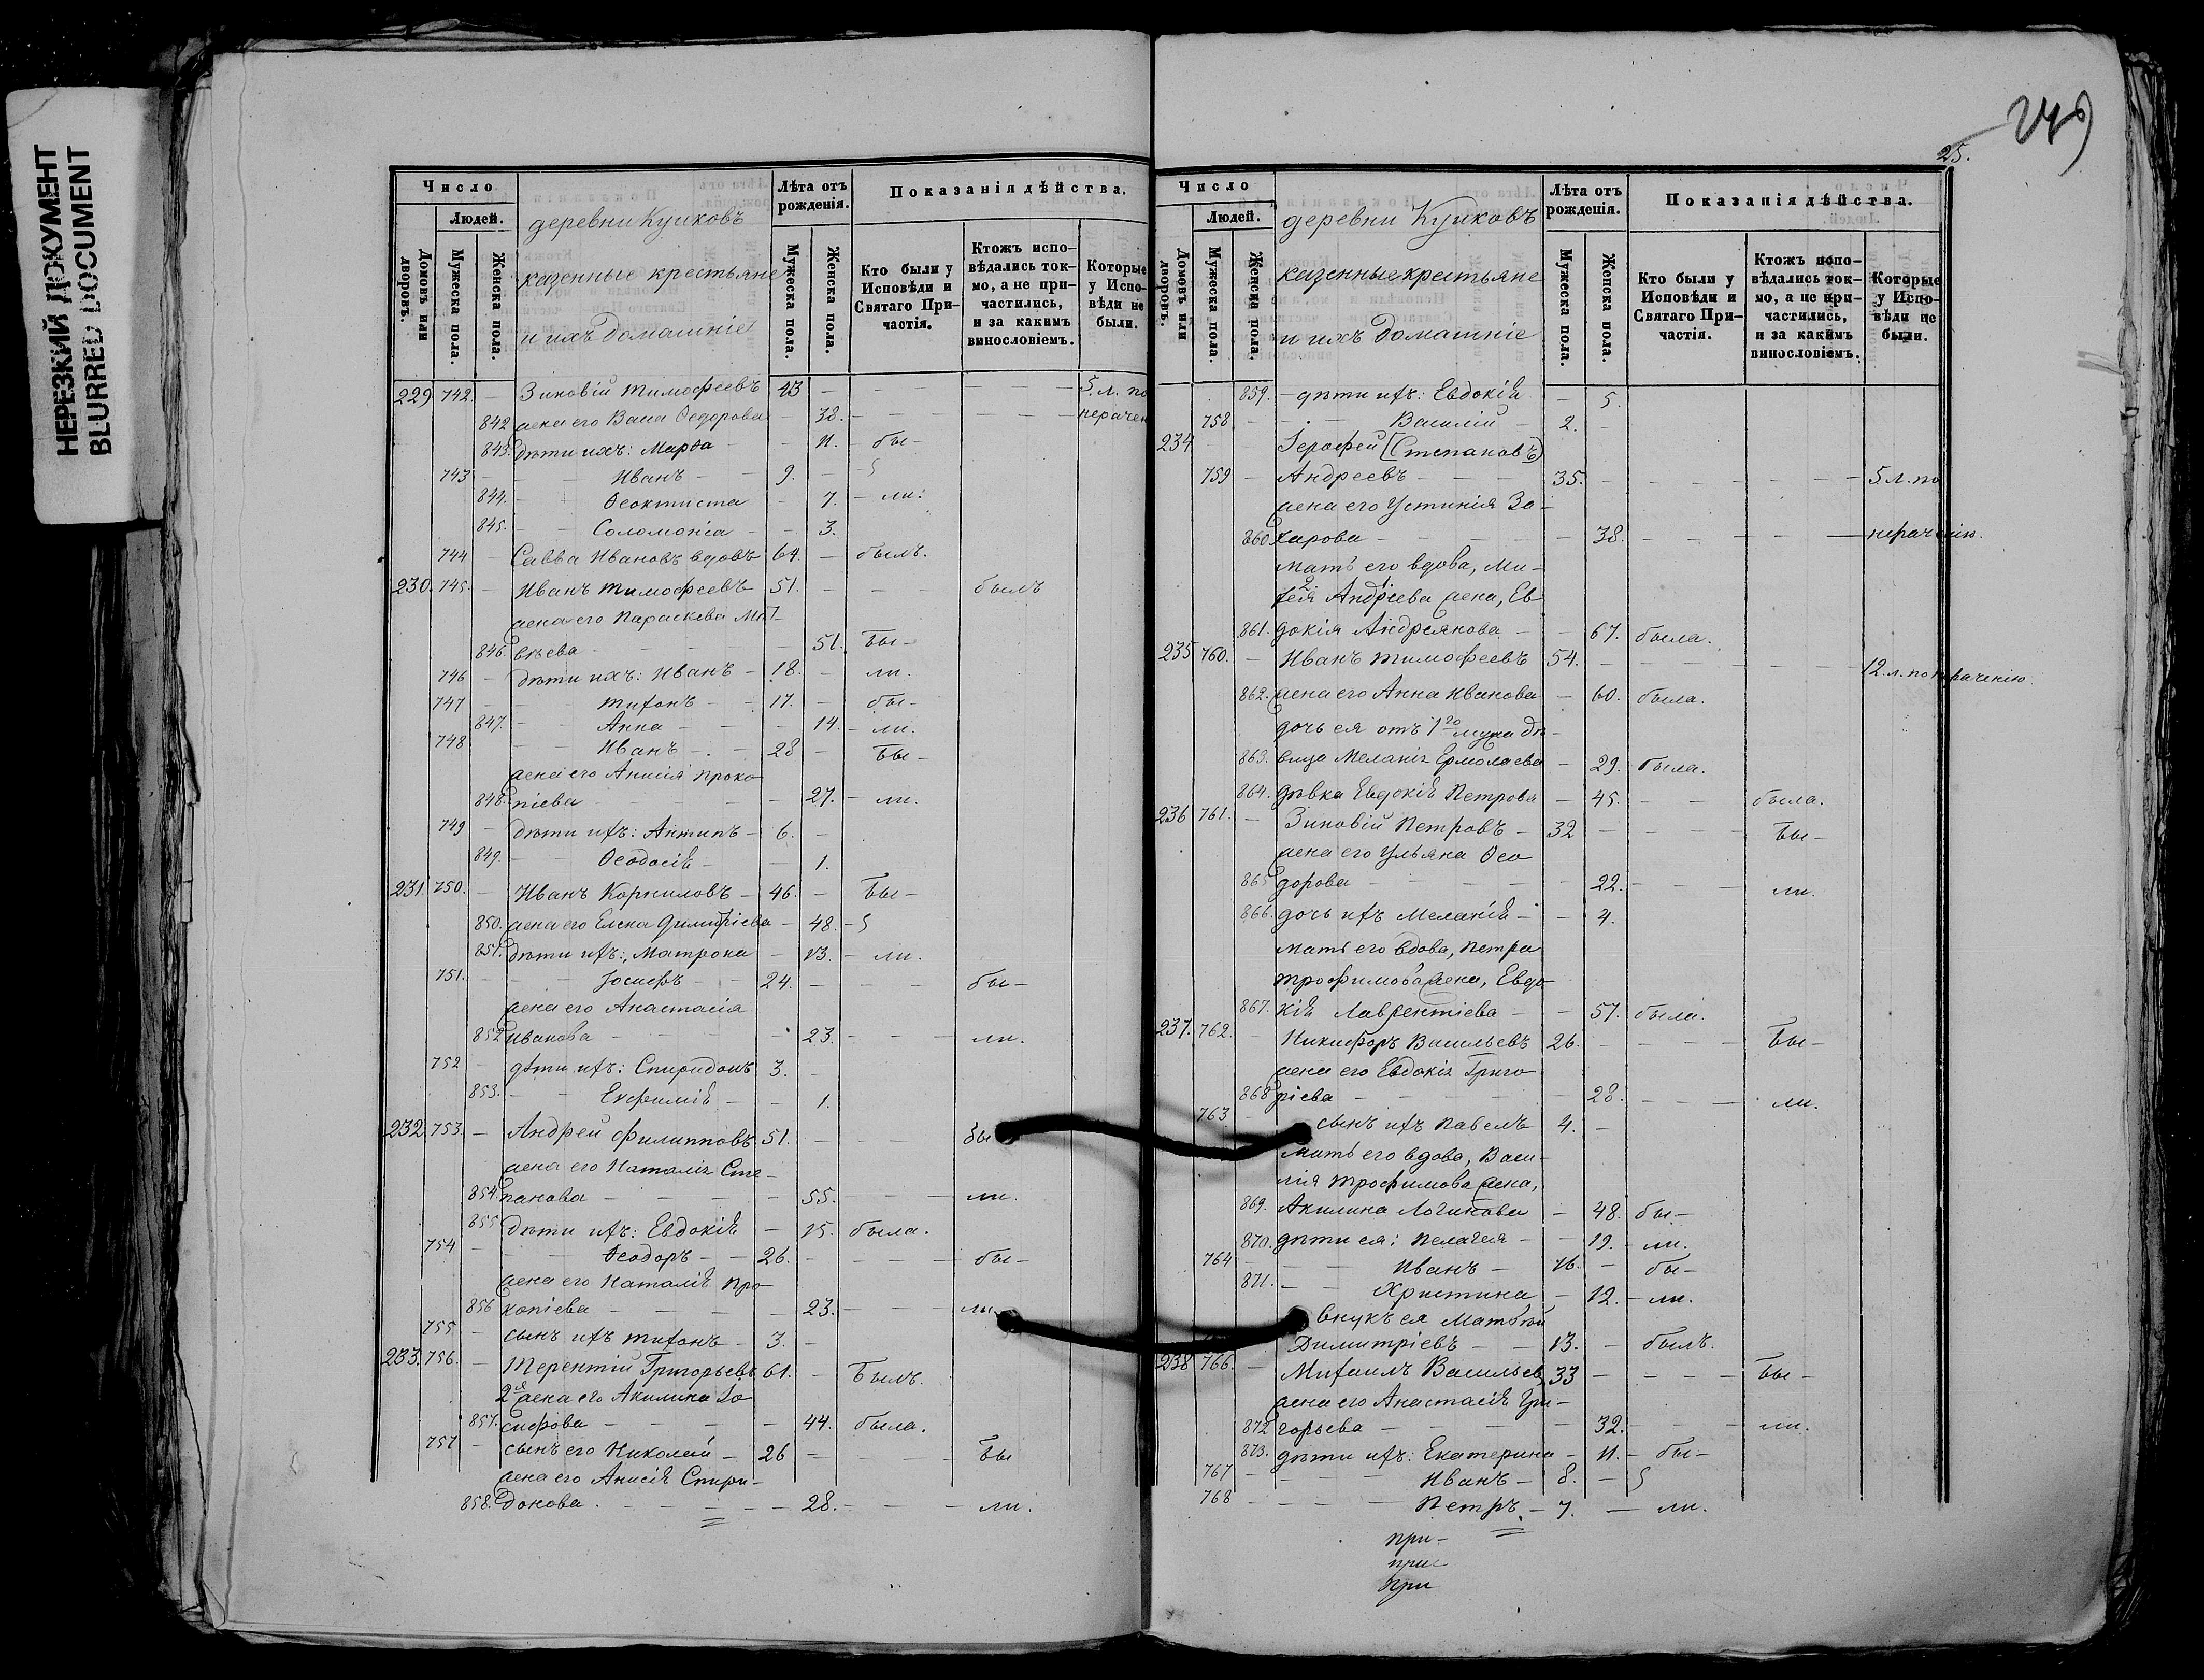 НЕРЕЗКИЙ ДОКУМЕНТ
BLURRED DOCUMENT
Число
Людей.
Домовъ или дворовъ.
Мужеска пола.
Женска пола.
деревни Куиковъ
казенные крестьяне
и ихъ домашніе
Лѣта отъ рожденія.
Мужеска пола.
Женска пола.
Показанія дѣйства.
Кто были у Исповѣди и Святаго Причастія.
Ктожъ исповѣдались токмо, а не причастились, и за какимъ винословіемъ.
Которые у Исповѣди не были.
229 742. – Зиновій Тимофеевъ 43 – – – – 5 л. по
842 жена его Васса Ѳедорова – 38. – – – нерачен
843. дѣти ихъ: Марѳа – 11. – бы–
743 – – Иванъ – 9. –
844. – Ѳеоктиста – 7. – ли.
845. – – Соломоніа – – 3.
744 – Савва Ивановъ вдовъ 64. – былъ.
230. 745. – Иванъ Тимофеевъ 51. – – – былъ
жена его Параскева Мат–
846. вѣева – – – – 51. бы–
746 – дѣти ихъ: Иванъ – 18. – ли.
747 – – Тихонъ – – 17. – бы–
847. – – Анна – – 14. – ли.
748 – – Иванъ – – 28 – бы–
жена его Анисія Проко
848. піева – – – 27. – ли.
749 – дѣти ихъ: Антипъ – 6. –
849. – – Ѳеодосія – – 1.
231. 750. – Иванъ Корниловъ – 46. – бы–
850. жена его Елена Димитріева – 48. –
851. дѣти ихъ: Матрона – 13. – ли.
751. – – Іосифъ – – 24. – – – бы–
жена его Анастасія
852 Иванова – – – 23. – – – ли.
752 – дѣти ихъ: Спиридонъ 3. –
853. – – Евфимія – – 1.
232. 753. – Андрей Филипповъ 51. – – – бы
жена его Наталія Сте–
854. панова – – – – 55. – – – ли.
855 дѣти ихъ: Евдокія – 15. была.
754 – – Ѳеодоръ – – 26. – – – бы–
жена его Наталія Про–
856 копіева – – – – 23. – – – ли.
755 – сынъ ихъ Тихонъ – 3. –
233. 756. – Терентій Григорьевъ 61. – былъ.
2я жена его Акилина Іо
857. сифова – – – – 44. была.
757 – сынъ его Николай – 26 – – – бы
жена его Анисія Спири–
858. донова. – – – – 28. – – – ли.
25.
Число
Людей.
Домовъ или дворовъ.
Мужеска пола.
Женска пола.
деревни Куиковъ
казенные крестьяне
и ихъ домашніе
Лѣта отъ рожденія.
Мужеска пола.
Женска пола.
Показанія дѣйства.
Кто были у Исповѣди и Святаго Причастія.
Ктожъ исповѣдались токмо, а не причастились, и за какимъ винословіемъ.
Которые у Исповѣди не были.
859. – дѣти ихъ: Евдокія – 5.
758 – – Василій – 2. –
234 Іерофей (Степановъ)
759 – Андреевъ – – – 35. – – – – 5 л. по
жена его Устинія За–
860 харова – – – – 38. – – – – нераченію.
мать его вдова, Ми–
хея Андреева жена, Ев
861. докія Андреянова – – 67. была.
235 760. – Иванъ Тимофеевъ 54. – – – – 12. л. по нераченію
862. жена его Анна Иванова – 60. была.
дочь ея отъ 1го мужа дѣ–
863. вица Меланія Ермолаева – 29. была.
864. дѣвка Евдокія Петрова – 45. – – была.
236 761. – Зиновій Петровъ – 32 – – – бы–
жена его Ульяна Ѳео
865 дорова – – – – 22. – – ли.
866. дочь ихъ Меланія – – 4.
мать его вдова, Петра
Трофимова жена, Евдо–
867. кія Лаврентіева – – 57. была.
237. 762. – Никифоръ Васильевъ 26. – – – бы–
жена его Евдокія Григо
868 ріева – – – – 28. – – – ли.
763 – сынъ ихъ Павелъ 4. –
Мать его вдова, Васи–
лія Трофимова жена,
869. Акилина Логинова – 48. бы–
870. дѣти ея: Пелагея – – 19. – ли.
764 – – Иванъ – 16. – бы–
871. – – Христина – 12. – ли.
внукъ ея Матѳѣй
Димитріевъ – – 13. – былъ.
238 766. – Михаилъ Васильев 33 – – – бы–
жена его Анастасія Гри–
872 горьева – – – – 32. – – – ли.
873. дѣти ихъ: Екатерина – 11. – бы–
767 – – – Иванъ – 8. –
768 – – – Петръ. – 7. – ли.
при–
при–
при